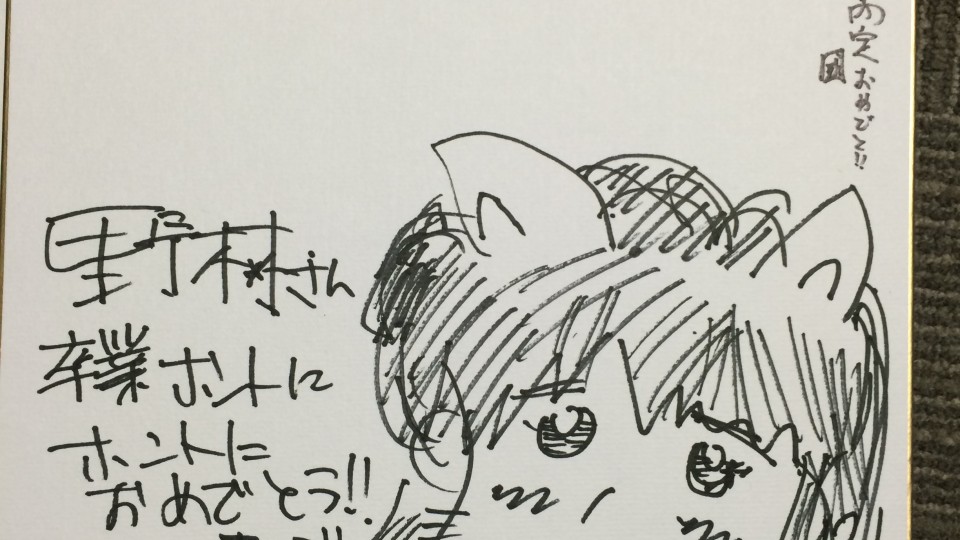 内定おめでと!!
野村さん
卒業ホントに
ホントに
おめでとう!!